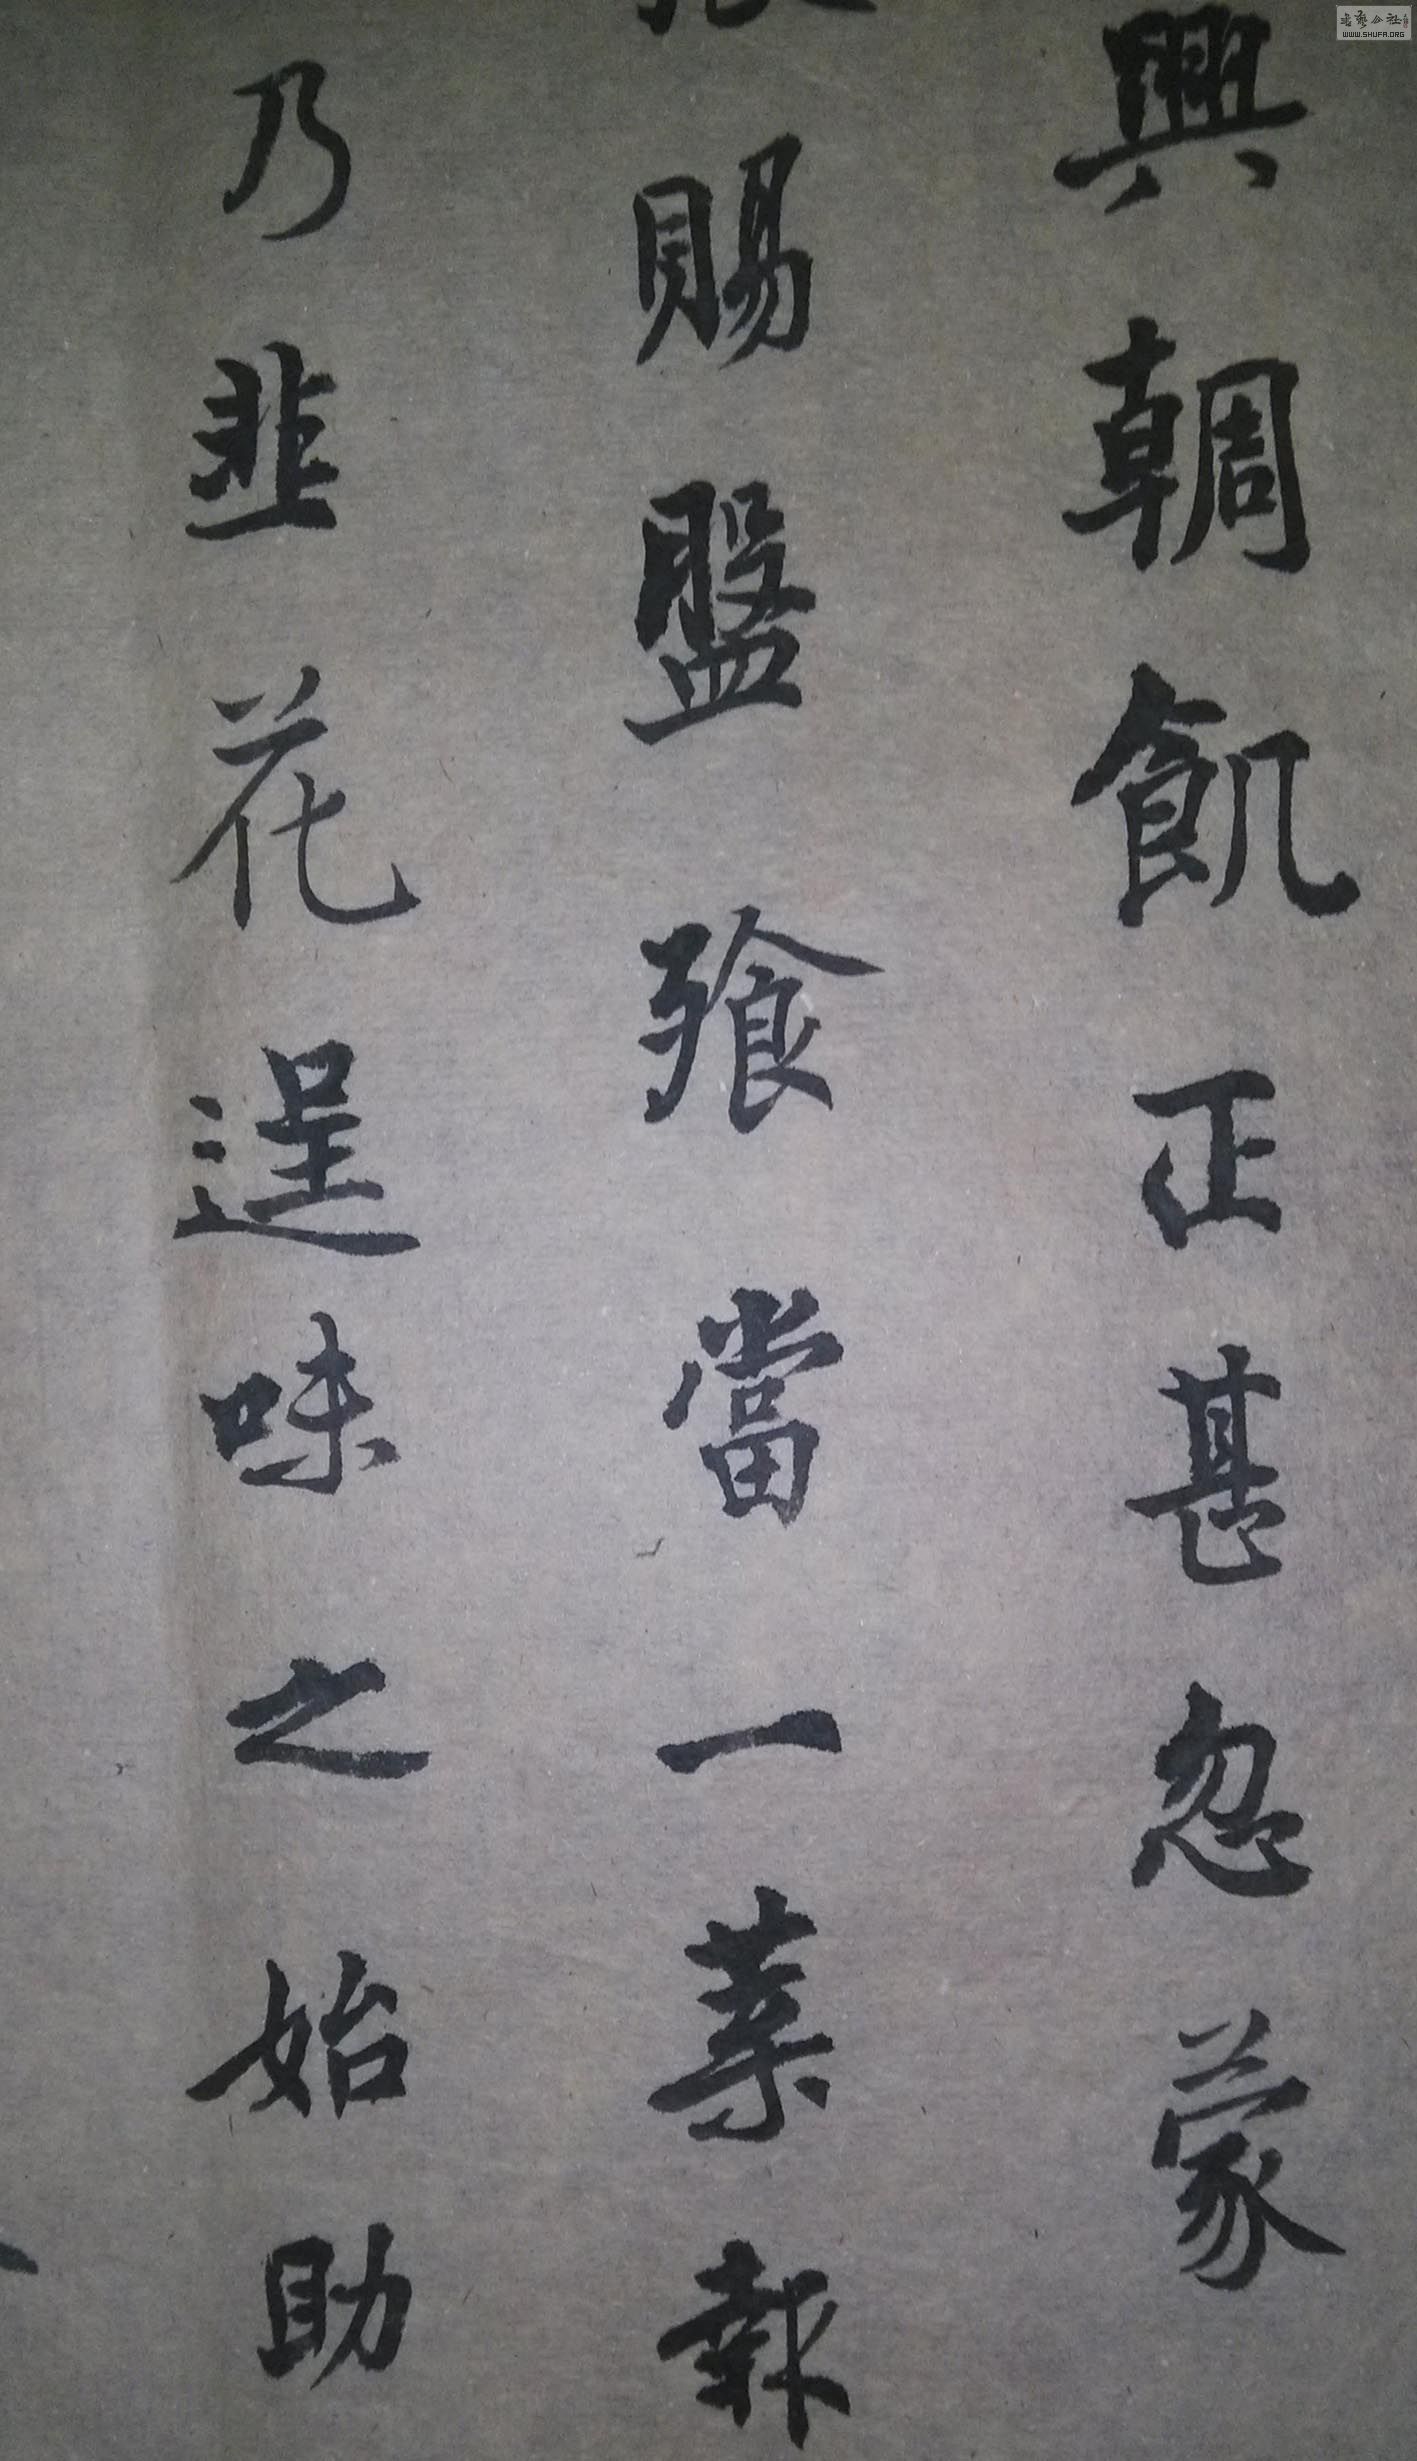 興輖飢正甚忽蒙
賜盤飱當一葉報
乃韭花逞味之始助
書藝公社
WWW.SHUFA.ORG